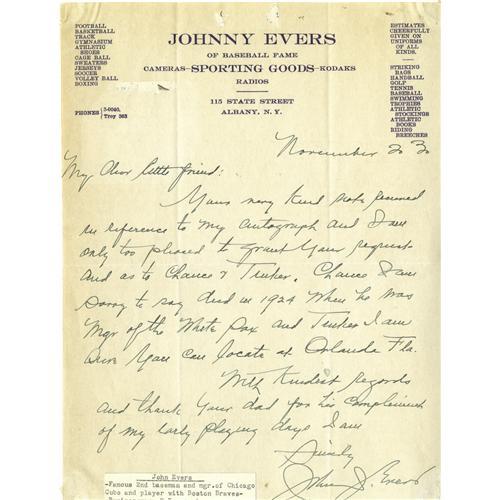 FOOTBALL
BASKETBALL
TRACK
GYMNASIUM
ATHLETIC
SHOES
CAGE BALL
SWEATERS
JERSEYS
SOCCER
VOLLEY BALL
BOXING
PHONES { 3-0040,
Troy 363
JOHNNY EVERS
OF BASEBALL FAME
CAMERAS—SPORTING GOODS—KODAKS
RADIOS
115 STATE STREET
ALBANY, N. Y.
ESTIMATES
CHEERFULLY
GIVEN ON
UNIFORMS
OF ALL
KINDS.
STRIKING
BAGS
HANDBALL
GOLF
TENNIS
BASEBALL
SWIMMING
TROPHIES
ATHLETIC
STOCKINGS
ATHLETIC
BOOKS
RIDING
BREECHES
November 23
My Dear little friend:
Yours very kind note received
in reference to my autograph and I am
only too pleased to grant your request
And as to Chance & Tinker. Chance I am
sorry to say died in 1924 when he was
Mgr of the White Sox and Tinker I am
sure you can locate at Orlando Fla.
With kindest regards
and thank your dad for his compliment
of my early playing days I am
Sincerely
John J. Evers
John Evers
-Famous 2nd baseman and mgr. of Chicago
Cubs and player with Boston Braves-